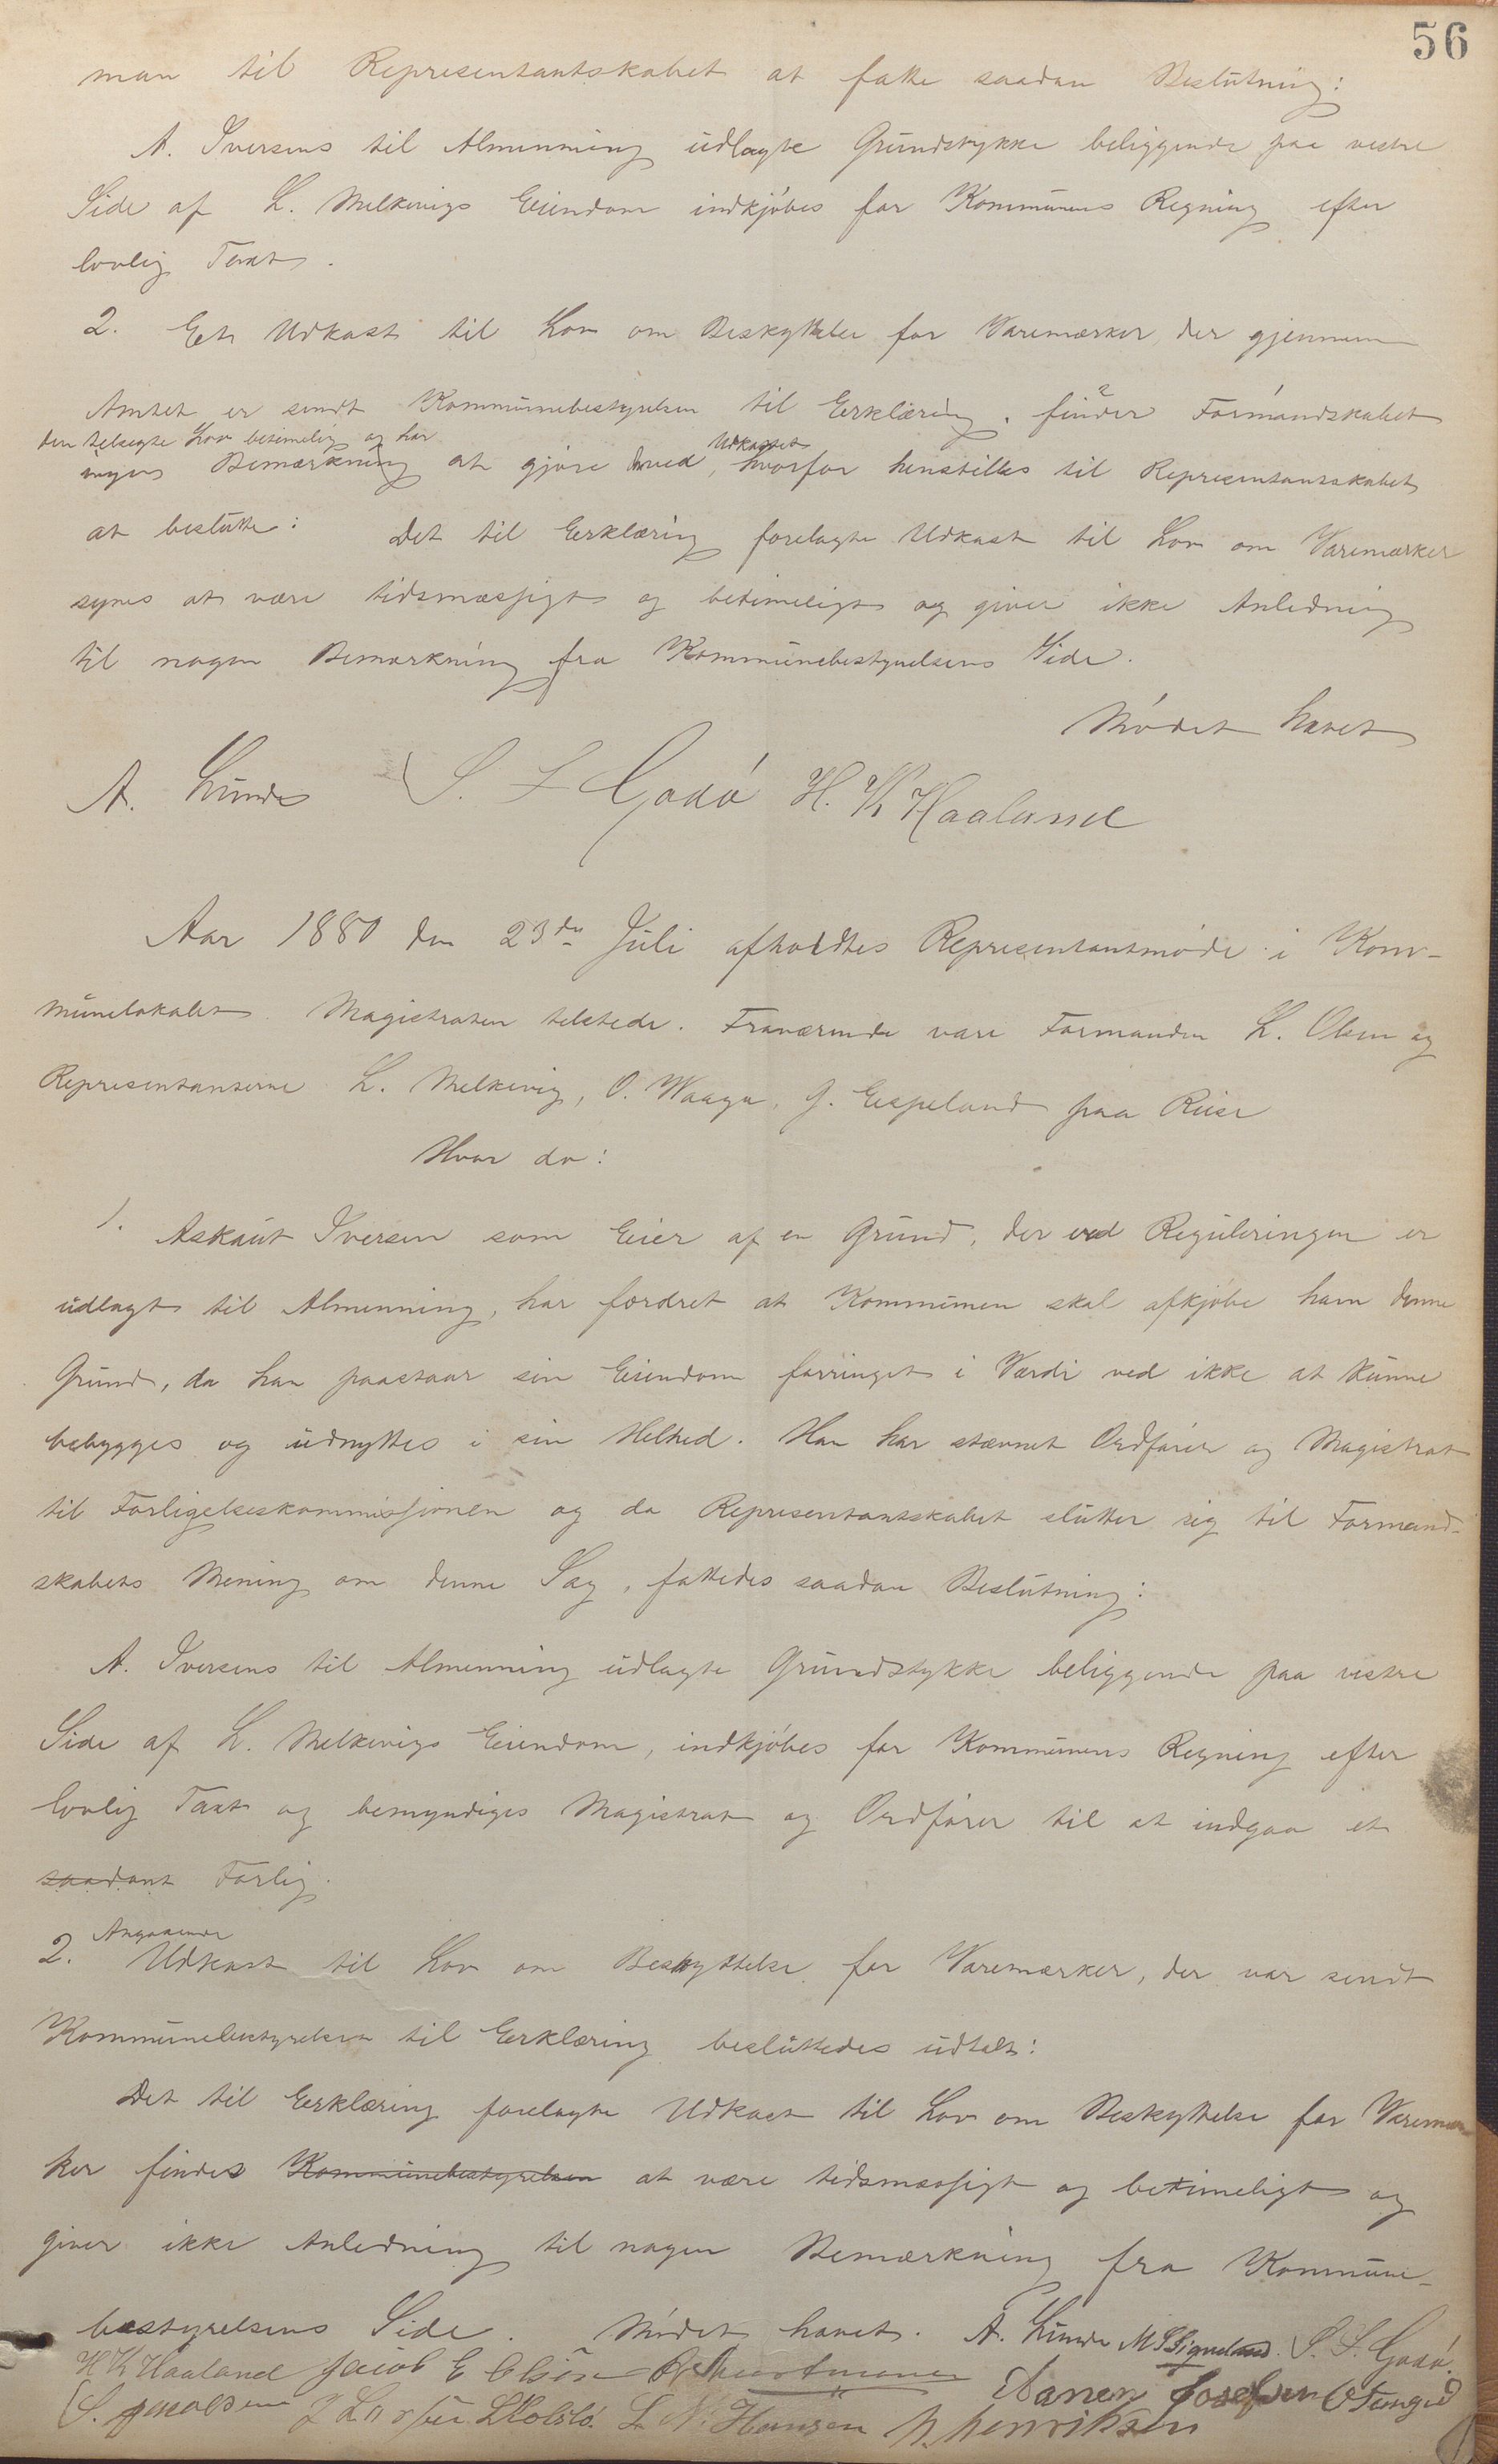 56
man til Representantskabet at fatte saadan Beslutning:
A. Iversens til Almenning udlagte Grundstykke beliggende paa vestre
Side af L. Melkevigs Eiendom indkjøbes for Kommunens Regning efter
lovlig Taxt.
2. Et Udkast til Lov om Beskyttelse for Varemærker, der gjennem
Amtet er sendt Kommunebestyrelsen til Erklæring, finder Formandskabet
den tilsigte Lov betimelig og har
Udkastet
ingen Bemærkning at gjøre ved, hvorfor henstilles til Representantskabet
at beslutte: Det til Erklæring forelagte Udkast til Lov om Varemærker
synes at være tidsmæssigt og betimeligt og giver ikke Anledning
til nogen Bemærkning fra Kommunebestyrelsens Side.
Mødet hævet
A. Lunde S. S Godø H. K Haaland
Aar 1880 den 23de Juli afholdtes Representantmøde i Kom-
munelokalet. Magistraten tilstede. Fraværende vare Formanden L. Olsen og
Representanterne L. Melkevig, O. Waage, J. Espeland paa Reise
Hvor da:
1. Askaut Iversen som Eier af en Grund, der ved Reguleringen er
udlagt til Almenning, har fordret at Kommunen skal afkjøbe ham denne
Grund, da han paastaar sin Eiendom forringet i Værdi ved ikke at kunne
bebygges og udnyttes i sin Helhed. Han har stævnet Ordfører og Magistrat
til Forligelseskommissjonen og da Representantskabet slutter sig til Formand-
skabets Mening om denne Sag, fattedes saadan Beslutning:
A. Iversens til Almenning udlagte Grundstykke beliggende paa vestre
Side af L. Melkevigs Eiendom, indkjøbes for Kommunens Regning efter
lovlig Taxt og bemyndiges Magistrat og Ordfører til at indgaa et
saadant Forlig.
Angaaende
2. Udkast til Lov om Beskyttelse for Varemærker, der var sendt
Kommunebestyrelsen til Erklæring besluttedes udtalt:
Det til Erklæring forelagte Udkast til Lov om Beskyttelse for Varemær
ker findes Kommunebestyrelsen at være tidsmæssigt og betimeligt og
giver ikke Anledning til nogen Bemærkning fra Kommune-
bestyrelsens Side. Mødet hævet. A. Lunde M S Signeland. S. S. Godø.
H K Haaland Jacob E Olsen Aanen Josefsen
S. Jacobsen J Larsen L Holslø. L. N. Hansen N. Henriksen